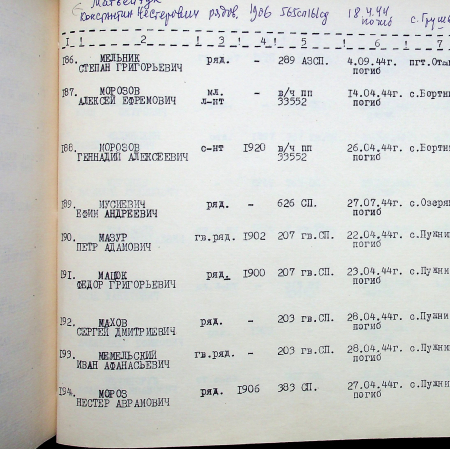 Матвейчук
Константин Нестерович рядов, 1906 565сп161сд 18.4.44 с.Грушв
погиб
I ! 2 ! 3 ! 4 ! 5 ! 6 ! 7
186. МЕЛЬНИК ряд. - 289 АЗСП. 4.09.44г. пгт.Отын
СТЕПАН ГРИГОРЬЕВИЧ погиб
187. МОРОЗОВ мл. - в/ч пп 14.04.44г. с.Бортни
АЛЕКСЕЙ ЕФРЕМОВИЧ л-нт 33552 погиб
188. МОРОЗОВ с-нт 1920 в/ч пп 26.04.44г. с.Бортни
ГЕННАДИЙ АЛЕКСЕЕВИЧ 33552 погиб
189. МУСИЕВИЧ ряд. - 626 СП. 27.07.44г. с.Озерян
ЕФИМ АНДРЕЕВИЧ погиб
190. МАЗУР гв.ряд. 1902 207 гв.СП. 22.04.44г. с.Пужник
ПЕТР АДАМОВИЧ погиб
191. МАЦЮК ряд. 1900 207 гв.СП. 23.04.44г. с.Пужни
ФЕДОР ГРИГОРЬЕВИЧ погиб
192. МАХОВ ряд. - 203 гв.СП. 28.04.44г. с.Пужни
СЕРГЕЙ ДМИТРИЕВИЧ погиб
193. МЕМЕЛЬСКИЙ гв.ряд. - 203 гв.СП. 28.04.44г. с.Пужни
ИВАН АФАНАСЬЕВИЧ погиб
194. МОРОЗ ряд. 1906 383 СП. 27.04.44г. с.Пужни
НЕСТЕР АВРАМОВИЧ погиб